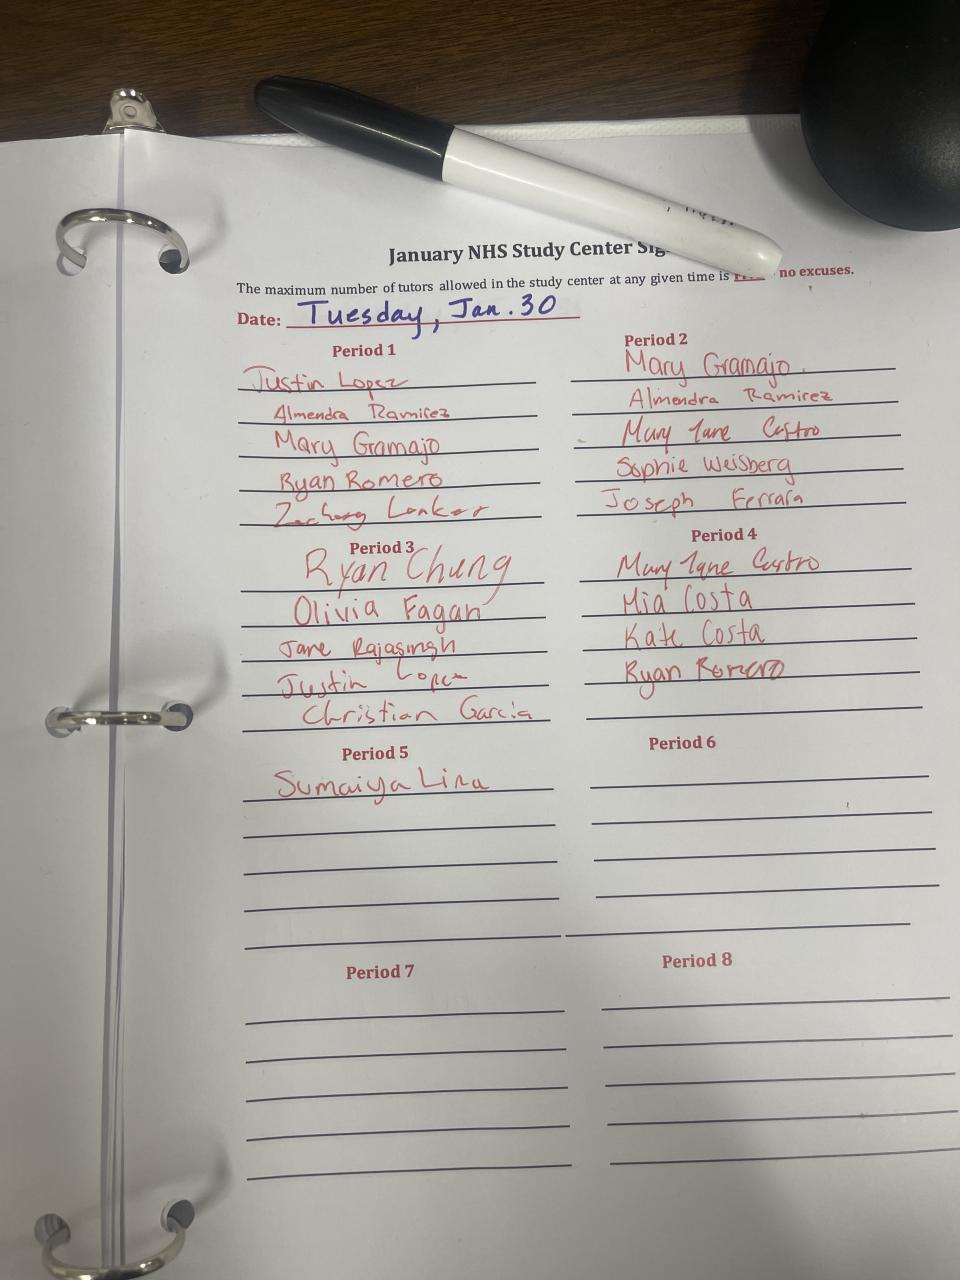 January NHS Study Center Sig
The maximum number of tutors allowed in the study center at any given time is no excuses.
Date: Tuesday, Jan. 30
Period 1
Justin Lopez
Almendra Ramirez
Mary Gramajo
Ryan Romero
Zachary Lenker
Period 2
Mary Gramajo
Almendra Ramirez
Mary Jane Castro
Sophie Weisberg
Joseph Ferrara
Period 3
Ryan Chung
Olivia Fagan
Jane Rajasingh
Justin Lopez
Christian Garcia
Period 4
Mary Jane Castro
Mia Costa
Kate Costa
Ryan Romero
Period 5
Sumaiya Lina
Period 6
Period 7
Period 8